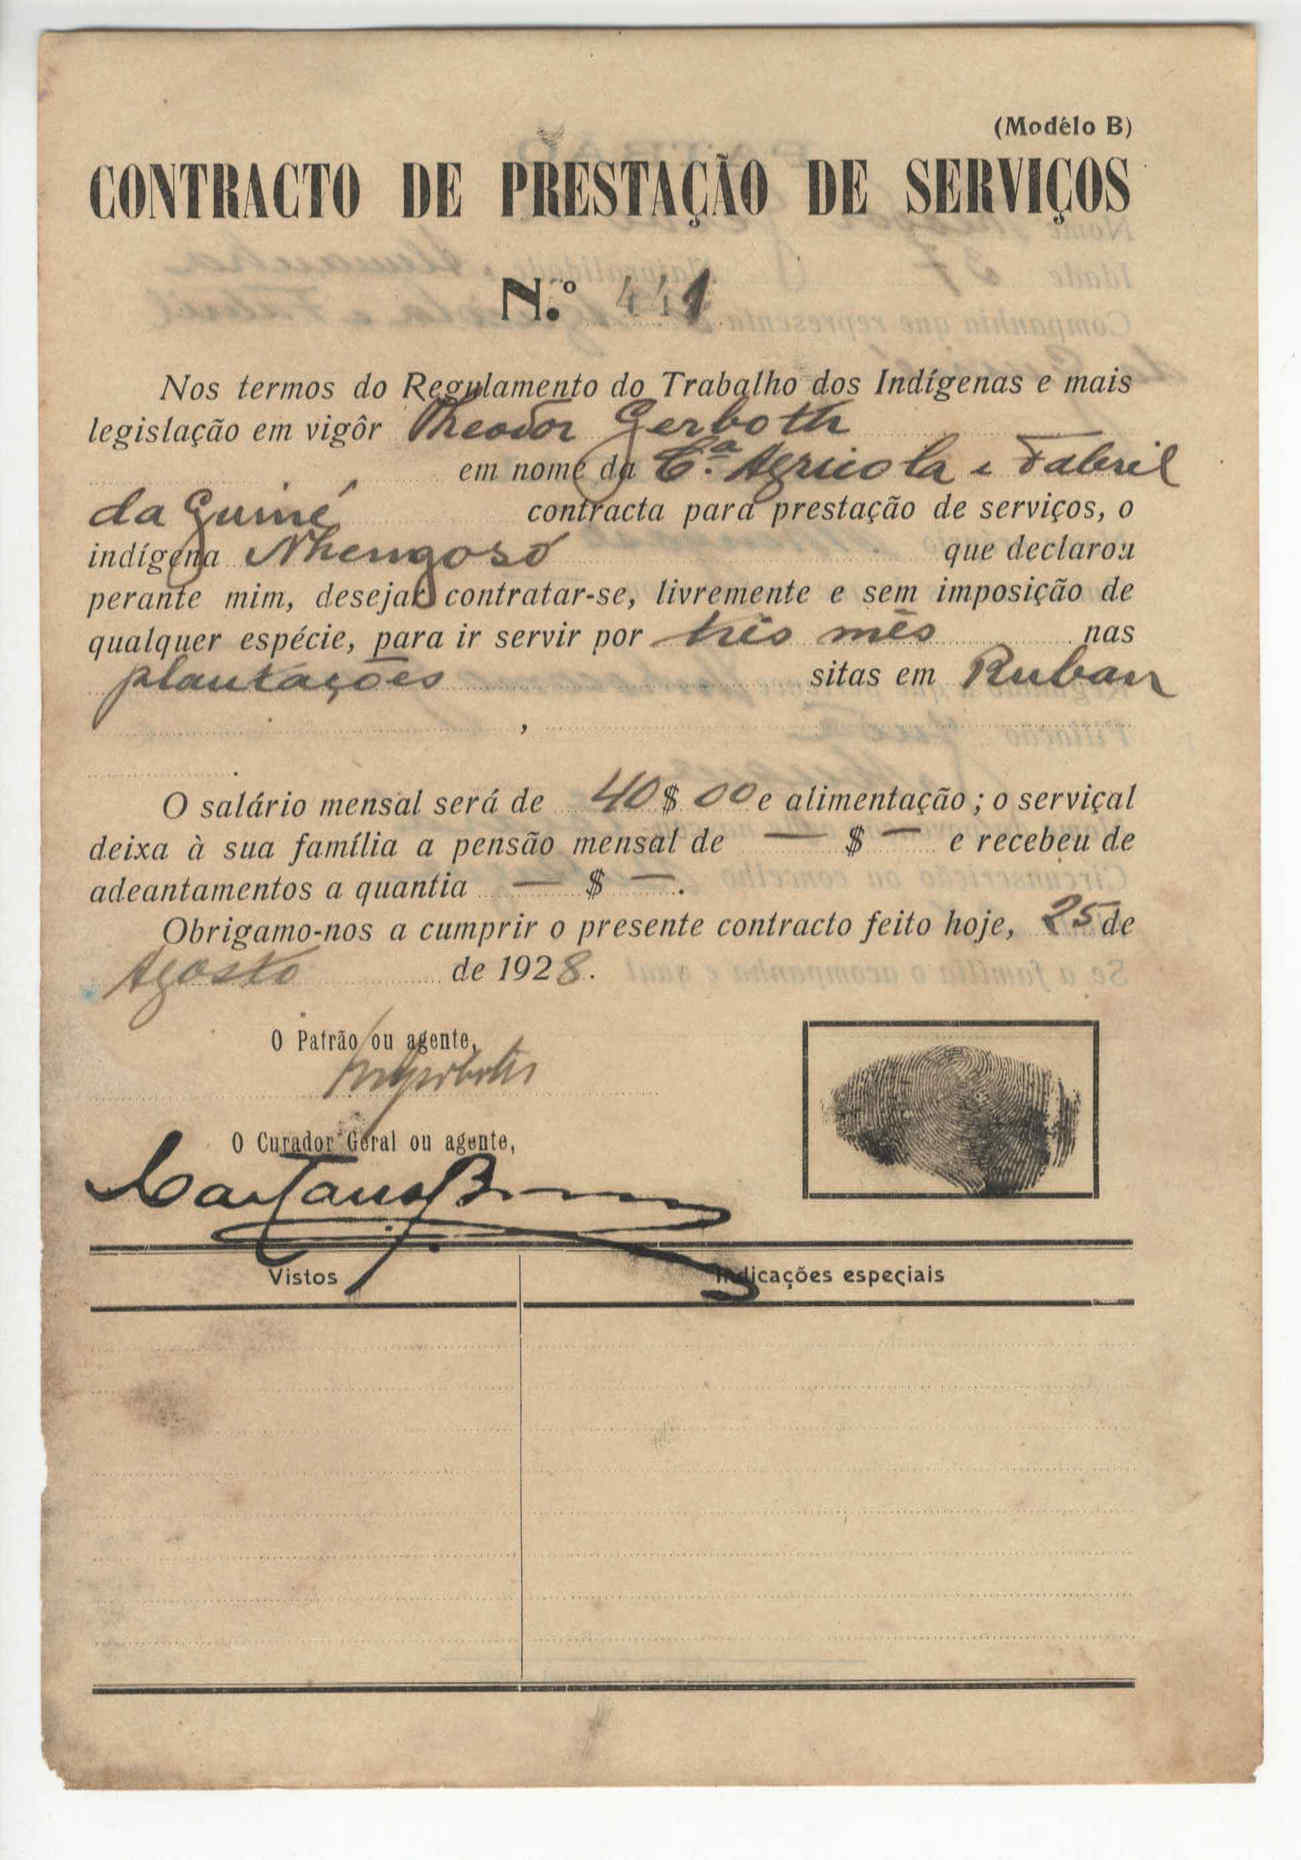 (Modélo B)
CONTRACTO DE PRESTAÇÃO DE SERVIÇOS
N.º 441
Nos termos do Regulamento do Trabalho dos Indígenas e mais
legislação em vigôr Theodor Gerboth
em nome da C.ª Agricola e Fabril
da Guiné contracta para prestação de serviços, o
indígena Nhengosó que declarou
perante mim, desejar contratar-se, livremente e sem imposição de
qualquer espécie, para ir servir por três mês nas
plantações sitas em Ruban
,
.
O salário mensal será de 40 $ 00 e alimentação; o serviçal
deixa à sua família a pensão mensal de — $ — e recebeu de
adeantamentos a quantia — $ —.
Obrigamo-nos a cumprir o presente contracto feito hoje, 25 de
Agosto de 1928.
O Patrão ou agente,
O Curador Geral ou agente,
Caetano
Vistos
Indicações especiais